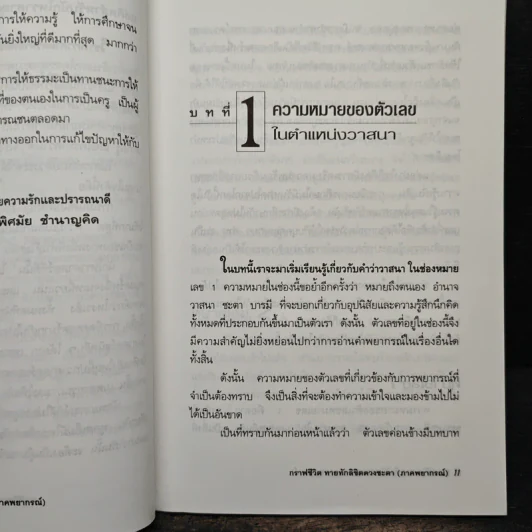 การให้ความรู้ ให้การศึกษาจน
นยิ่งใหญ่ที่ดีมากที่สุด มากกว่า
การให้ธรรมะเป็นทานชนะการให้
ที่ของตนเองในการเป็นครู เป็นผู้
ารณชนตลอดมา
ทางออกในการแก้ไขปัญหาให้กับ
ยความรักและปรารถนาดี
พิศมัย ชำนาญคิด
าคพยากรณ์)
บทที่ 1 ความหมายของตัวเลข
ในตำแหน่งวาสนา
ในบทนี้เราจะมาเริ่มเรียนรู้เกี่ยวกับคำว่าวาสนา ในช่องหมาย
เลข 1 ความหมายในช่องนี้ขอย้ำอีกครั้งว่า หมายถึงตนเอง อำนาจ
วาสนา ชะตา บารมี ที่จะบอกเกี่ยวกับอุปนิสัยและความรู้สึกนึกคิด
ทั้งหมดที่ประกอบกันขึ้นมาเป็นตัวเรา ดังนั้น ตัวเลขที่อยู่ในช่องนี้จึง
มีความสำคัญไม่ยิ่งหย่อนไปกว่าการอ่านคำพยากรณ์ในเรื่องอื่นใด
ทั้งสิ้น
ดังนั้น ความหมายของตัวเลขที่เกี่ยวข้องกับการพยากรณ์ที่
จำเป็นต้องทราบ จึงเป็นสิ่งที่จะต้องทำความเข้าใจและมองข้ามไปไม่
ได้เป็นอันขาด
เป็นที่ทราบกันมาก่อนหน้าแล้วว่า ตัวเลขค่อนข้างมีบทบาท
กราฟชีวิต ทายทักลิขิตดวงชะตา (ภาคพยากรณ์) 11